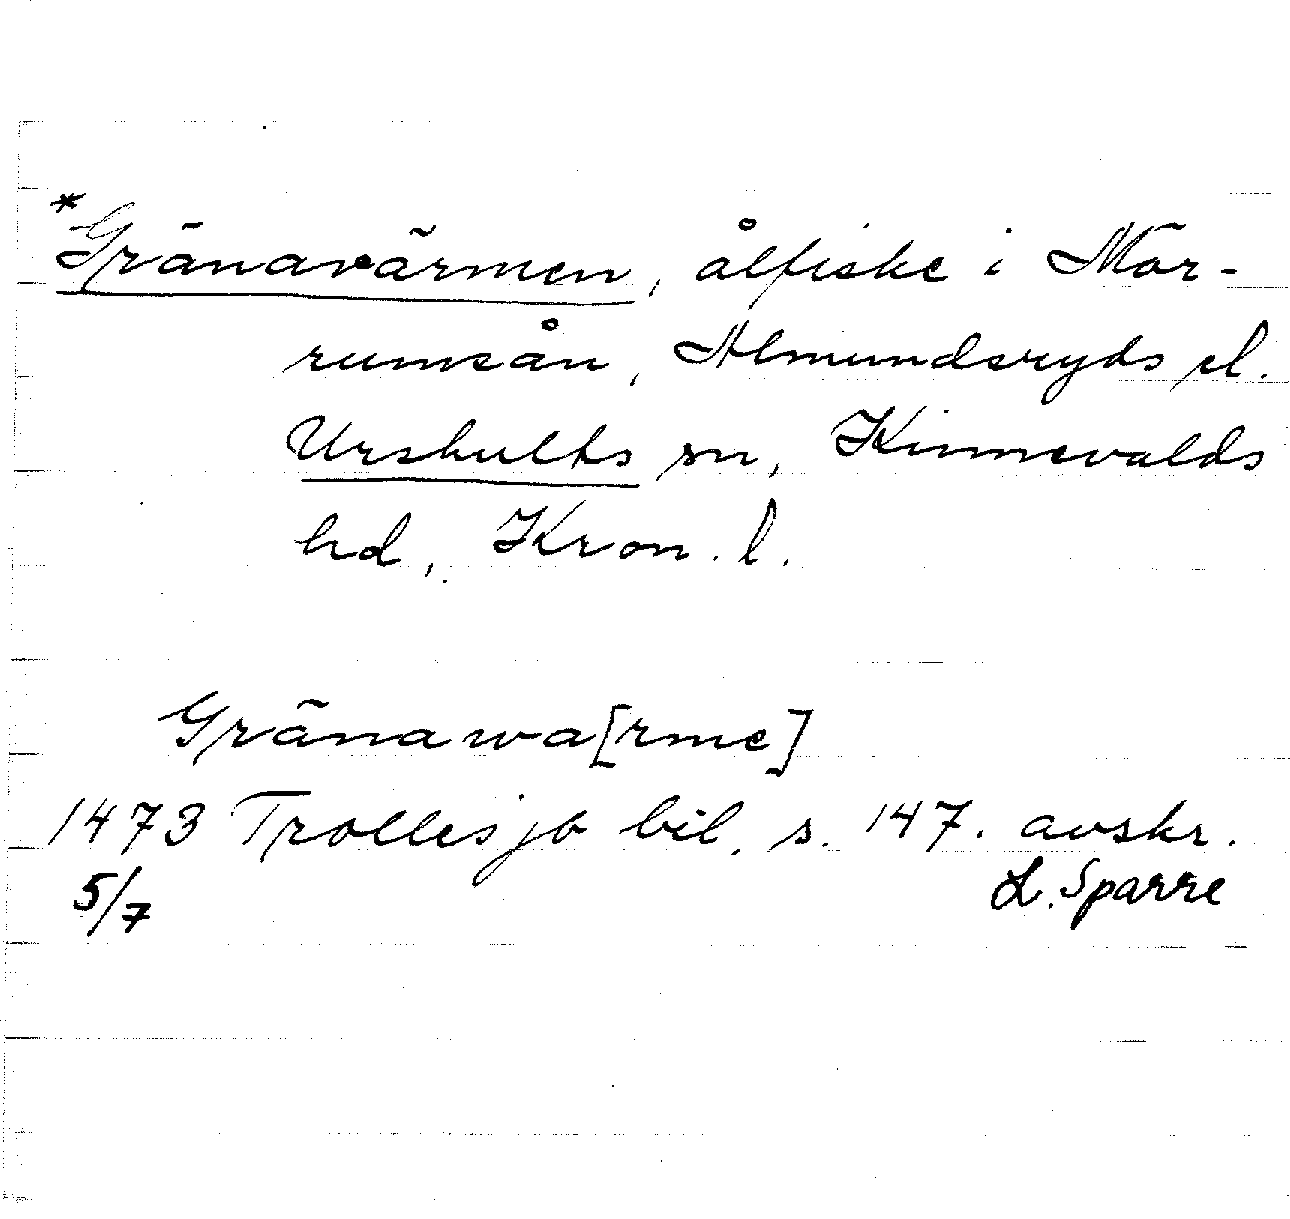 *Gränavärmen, ålfiske i Mör-
rumsån, Almundsryds el.
Urshults sn, Kinnevalds
hd, Kron. l.
Gränawa[rme]
1473 Trollesjb bil. s. 147. avskr.
5/7 L. Sparre